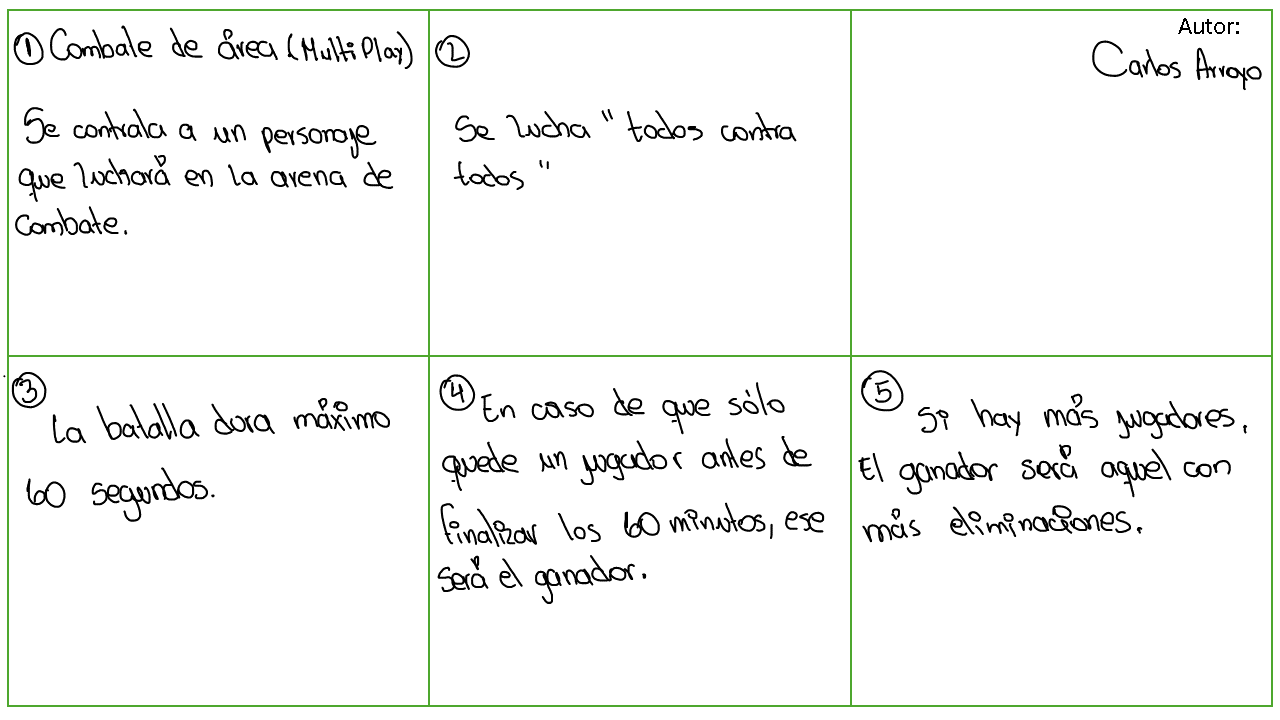 ① Combate de área (MultiPlay)
Se contrala a un personaje
que luchará en la arena de
combate.
②
Se lucha " todos contra
todos "
Autor:
Carlos Arroyo
③
La batalla dura máximo
60 segundos.
④ En caso de que sólo
quede un jugador antes de
finalizar los 60 minutos, ese
será el ganador.
⑤
Si hay más jugadores,
El ganador será aquel con
más eliminaciones.